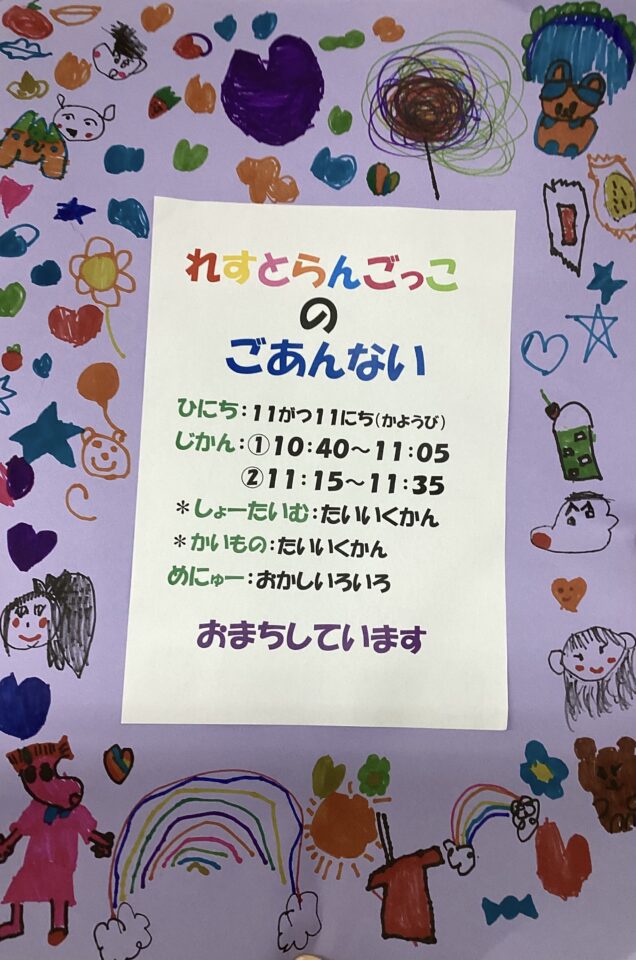 れすとらんごっこ
の
ごあんない
ひにち:11がつ11にち(かようび)
じかん:①10:40～11:05
②11:15～11:35
*しょーたいむ:たいいくかん
*かいもの:たいいくかん
めにゅー:おかしいろいろ
おまちしています